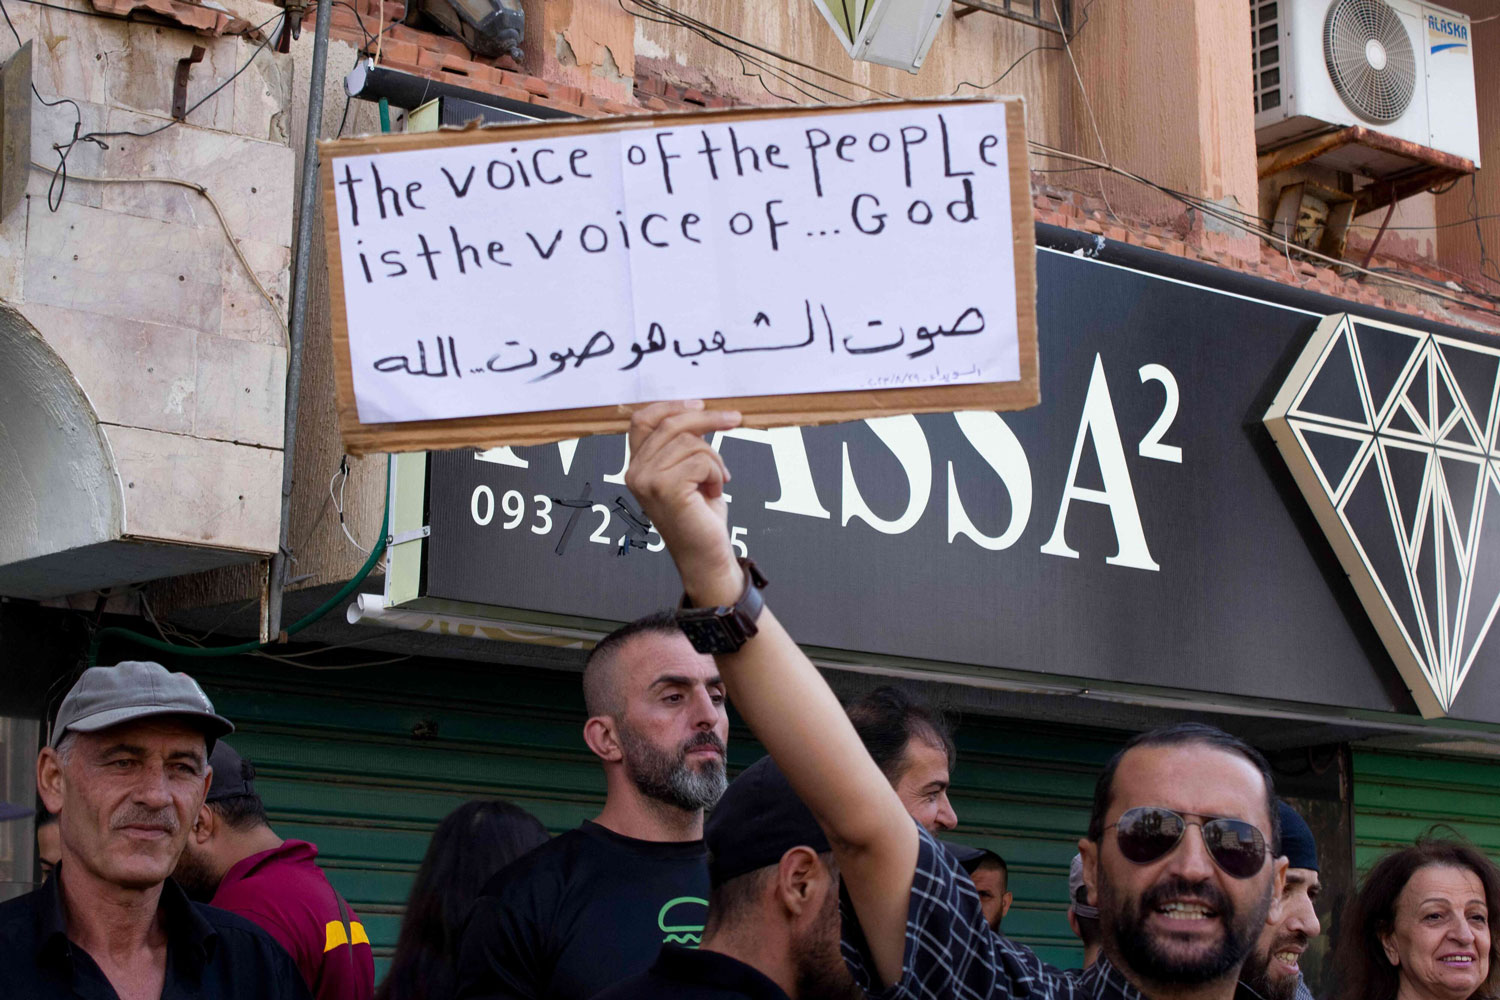 the voice of the people
is the voice of...God
صوت الشعب هو صوت...الله
السويداء. ٢٠٢٣/٨/٢٩
MASSA²
ALASKA